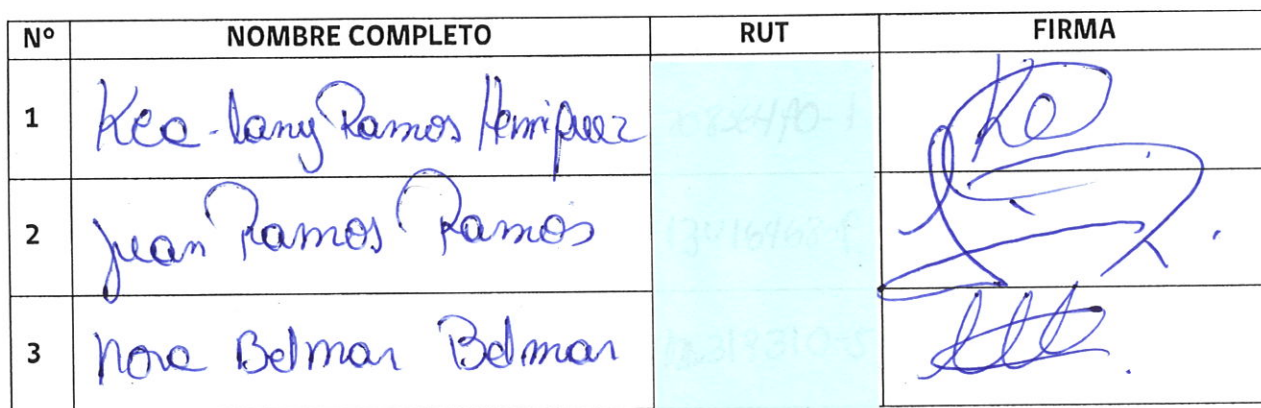 Nº NOMBRE COMPLETO RUT FIRMA
1 Kea-lany Ramos Henriquez
2 Juan Ramos Ramos
3 Nora Belmar Belmar